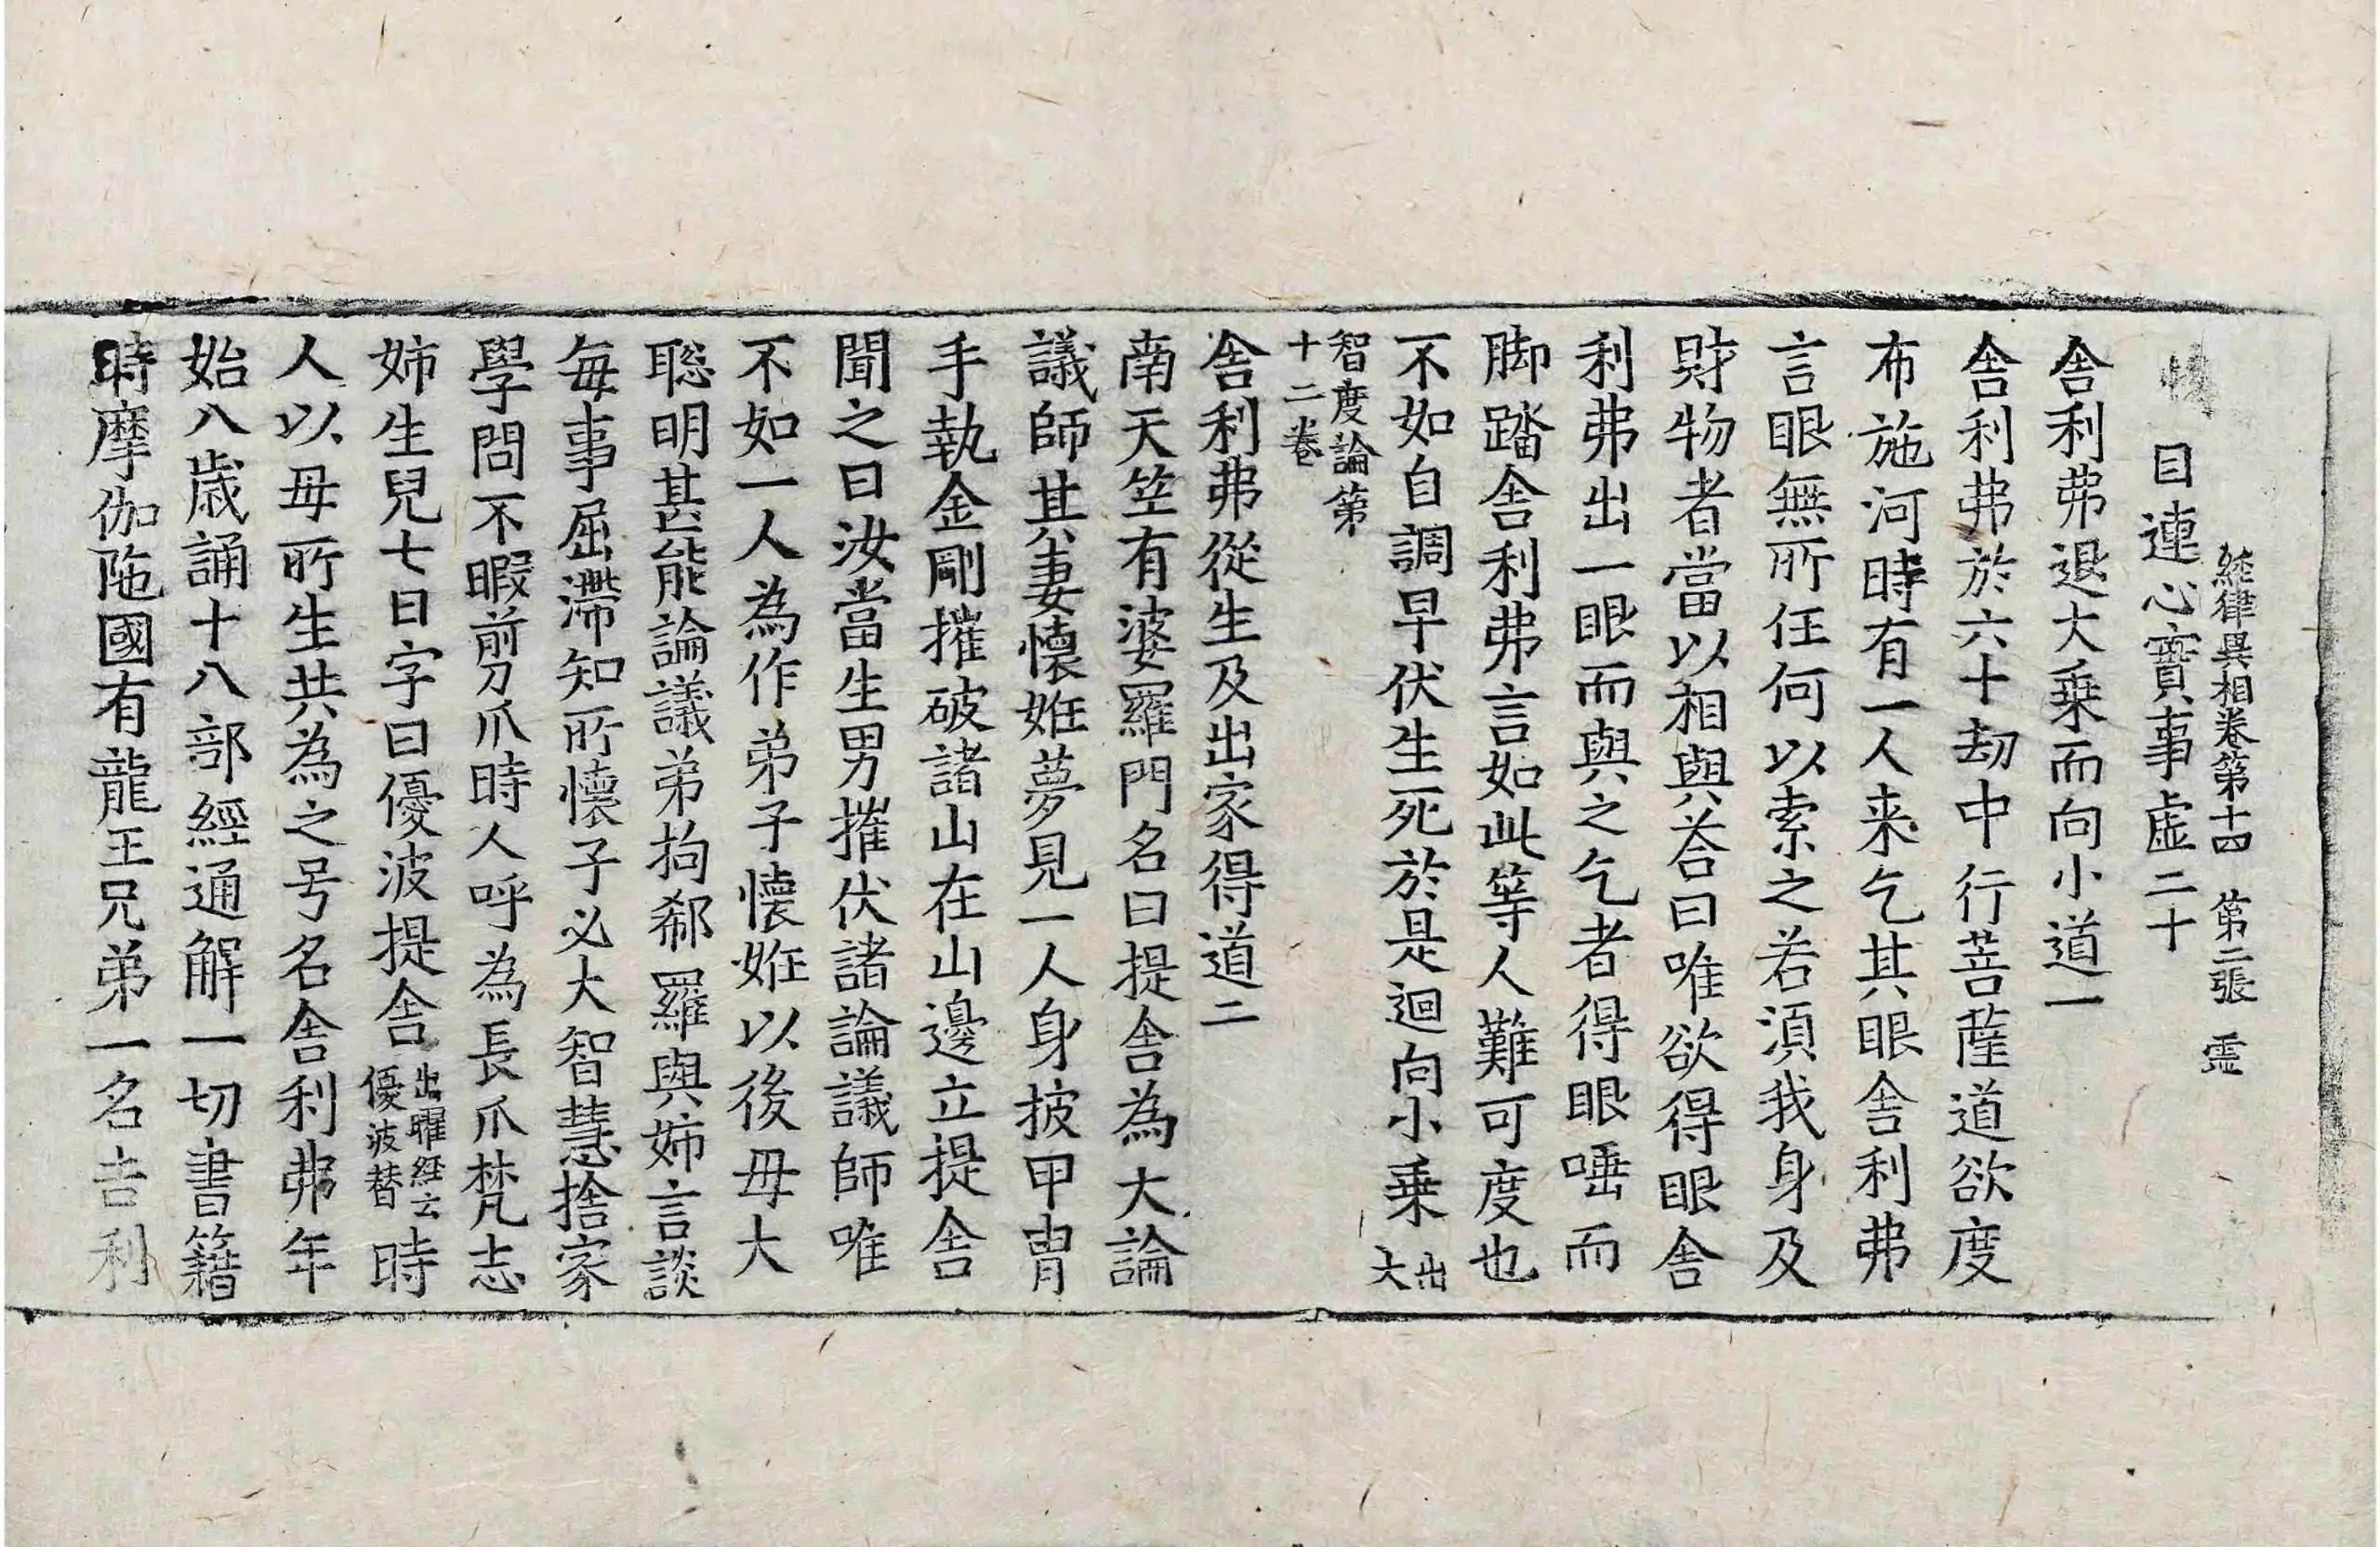 経律異相卷第十四 第二張 霊
目連心實事虛二十
舎利弗退大乗而向小道一
舎利弗於六十劫中行菩薩道欲度
布施河時有一人来乞其眼舎利弗
言眼無所任何以索之若湏我身及
財物者當以相與荅曰唯欲得眼舎
利弗出一眼而與之乞者得眼唾而
脚踏舎利弗言如此等人難可度也
不如自調早伏生死於是迴向小乗出大
智度論第
十二卷
舎利弗從生及出家得道二
南天笁有婆羅門名曰提舎為大論
議師其妻懐姙夢見一人身披甲冑
手執金剛摧破諸山在山邊立提舎
聞之曰汝當生男摧伏諸論議師唯
不如一人為作弟子懐姙以後毋大
聡明甚能論議弟拘郗羅與姉言談
毎事屈滯知所懐子必大智慧捨家
學問不暇剪爪時人呼為長爪梵志
姉生兒七日字曰優波提舎出曜経云優波替時
人以毋所生共為之号名舎利弗年
始八歳誦十八部經通解一切書籍
時摩伽陁國有龍王兄弟一名吉利